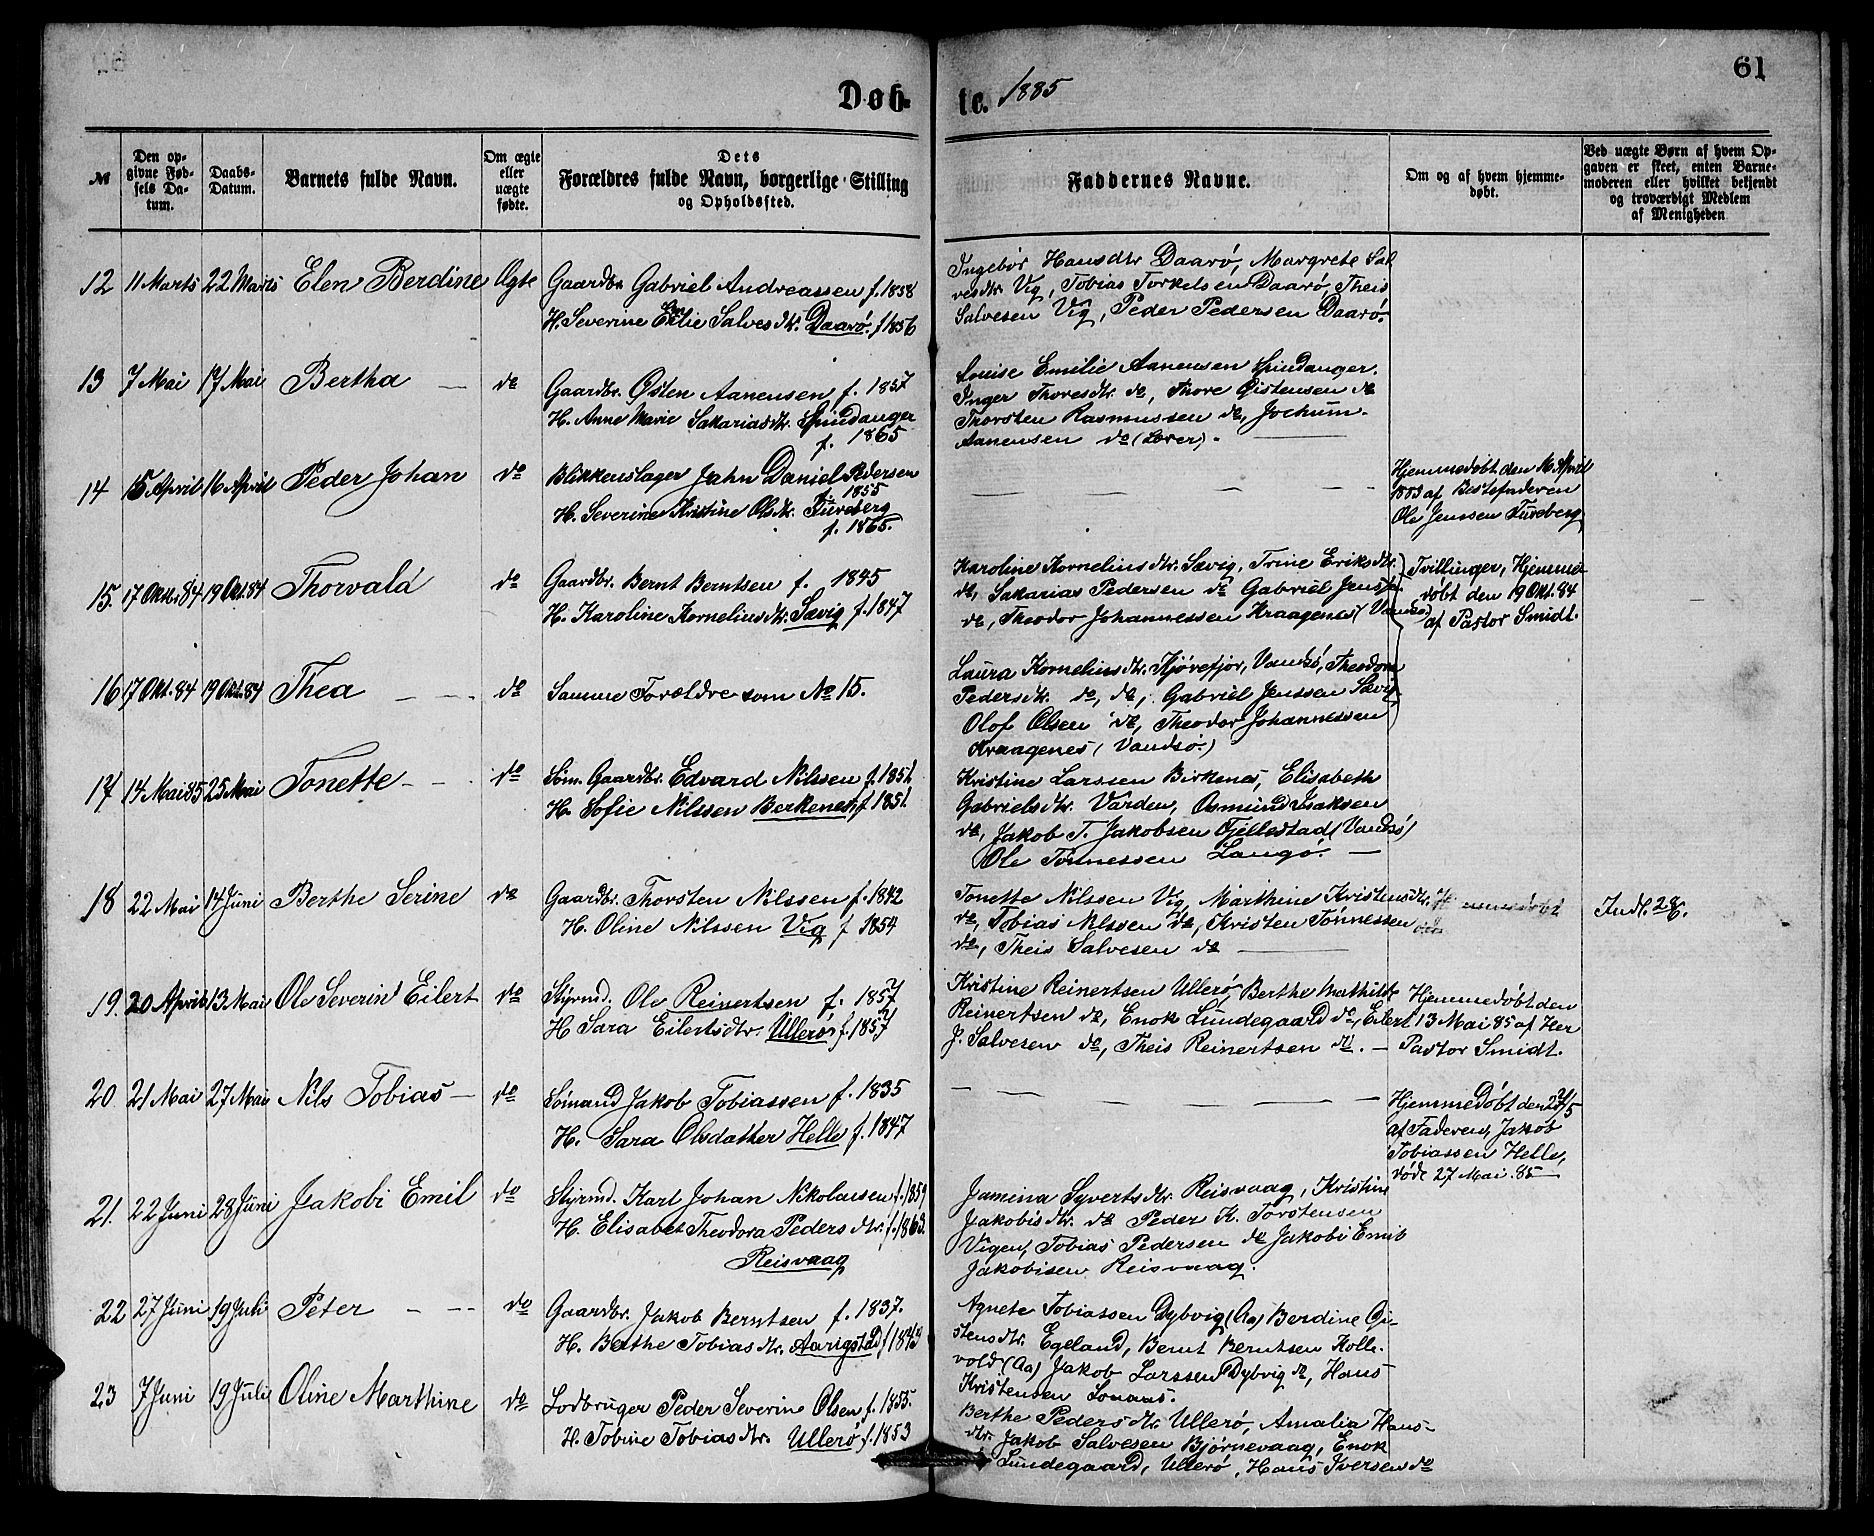 61
Døb-
te. 1885
№
Den op-
givne Fød-
sels Da-
tum.
Daabs-
Datum.
Barnets fulde Navn.
Om ægte
eller
uægte
fødte.
Dets
Forældres fulde Navn, borgerlige Stilling
og Opholdssted.
Faddernes Navne.
Om og af hvem hjemme-
døbt.
Ved uægte Børn af hvem Op-
gaven er skeet, enten Barne-
moderen eller hvilket bekjendt
og troværdigt Medlem
af Menigheden
12 11 Marts 22 Marts Elen Berdine Ægte
Gaardbr. Gabriel Andreassen f. 1858
H. Severine Salvesdtr. Daarø. f 1856
Ingebor Hansdtr Daarø, Margrete Sal
vesdtr. Vig, Tobias Torkelsen Daarø, Theis
Salvesen Vig, Peder Pedersen Daarø.
13 7 Mai 17 Mai Bertha — do
Gaardbr. Østen Aanensen f. 1857
H. Anne Marie Sakariasdtr. Spindanger
f. 1865
Louise Emilie Aanensen Spindanger.
Inger Thoresdtr. do, Thore Øistensen do
Thorsten Rasmussen do, Jochum
Aanensen do (Lærer). —
14 15 April 16 April Peder Johan do
Blikkenslager Jahn Daniel Pedersen
f. 1855
H. Severine Kristine Olsdtr. Fureberg
f. 1865.
— — — — —
Hjemmedøbt den 16 April
1885 af Bestefaderen
Ole Jenssen Fureberg
15. 17 Oktr. 84 19 Okt. 84 Thorvald do
Gaardbr. Bernt Berntsen f. 1845
H. Karoline Kornelinsdtr. Sævig f. 1847
Karoline Kornelinsdtr. Sævig, Trine Eriksdtr.
do, Sakarias Pedersen do Gabriel Jenssen
do, Theodor Johannessen Kraagenes (Vandsø)
Tvillinger, Hjemme
døbt den 19 Okt. 84
af Pastor Smidt.
16 17 Okt. 84 19 Okt. 84 Thea — — do
Samme Forældre som No 15.
Laura Kornelinsdtr. Kjørefjor, Vandsø, Theodora
Pedersdtr. do, do, Gabriel Jenssen Sævig
Olof Olsen do, Theodor Johannessen
Kraagenes (Vandsø.)
17 14 Mai 85 25 Mai Tonette — — do
Søm. Gaardbr. Edvard Nilssen f. 1851
H. Sofie Nilssen Berkenes, f. 1851.
Kristine Larssen Birkenes, Elisabeth
Gabrielsdtr. Varden, Osmund Isaksen
do, Jakob T. Jakobsen Fjellestad (Vandsø)
Ole Tønnessen Langø. —
18 22 Mai 14 Juni Berthe Serine do
Gaardbr. Thorsten Nilssen f. 1842
H. Oline Nilssen Vig f 1854
Tonette Nilssen Vig, Marthine Kristensdtr.
do, Tobias Nilssen do, Kristen Tønnessen
do, Theis Salvesen do —
Hjemmedøbt
Indl. 28/6.
19. 20 April 13 Mai Ole Severin Eilert do
Styrmd. Ole Reinertsen f. 1857
H Sara Eilertsdtr. Ullerø f. 1857
Kristine Reinertsen Ullerø, Berthe Mathilde
Reinertsen do, Enok Lundegaard do, Eilert
J. Salvesen do, Theis Reinertsen do. —
Hjemmedøbt den
13 Mai 85 af Her
Pastor Smidt.
20 21 Mai 27 Mai Nils Tobias — do
Sømand Jakob Tobiassen f. 1835
H. Sara Olsdatter Helle f. 1847
— — — — —
Hjemmedøbt den 27/5
af Faderen, Jakob
Tobiassen Helle,
døde 27 Mai. 85
21. 22 Juni 28 Juni Jakobi Emil do
Styrmd. Karl Johan Nikolaisen f. 1859
H. Elisabet Theodora Pedersdtr. f. 1863.
Reisvaag
Jamina Syvertsdtr. Reisvaag, Kristine
Jakobisdtr. do Peder K. Torstensen
Vigen, Tobias Pedersen do Jakobi Emil
Jakobisen Reisvaag.
22 27 Juni 19 Juli Peter — — do
Gaardbr. Jakob Berntsen f. 1837.
H. Berthe Tobiasdtr. Aarigstad f 1843
Agnete Tobiassen Dybvig (Aa) Berdine Øi-
stensdtr. Egeland, Bernt Berntsen Kolle-
vold (Aa) Jakob Larssen Dybvig do, Hans
Kristensen
23 7 Juni 19 Juli Oline Marthine do
Lodbruger Peder Severin Olsen f. 1855.
H. Tobine Tobiasdtr. Ullerø, f. 1853
Berthe Pedersdtr. Ullerø, Amalia Hans-
dtr. Jakob Salvesen Bjørnevaag, Enok
Lundegaard, Ullerø, Hans Iversen do